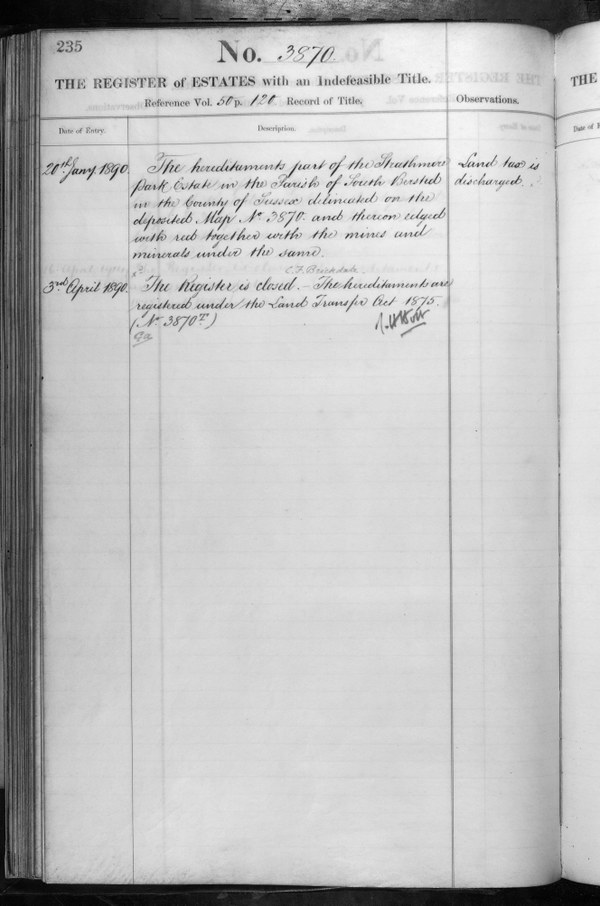 235
No. 3870.
THE REGISTER of ESTATES with an Indefeasible Title.
Reference Vol. 50 p. 120 Record of Title.
Observations.
Date of Entry.
Description.
20th Jany 1890.
The hereditaments part of the Strathmore
Park Estate in the Parish of South Bersted
in the County of Sussex delineated on the
deposited Map No 3870. and thereon edged
with red together with the mines and
minerals under the same.
Land tax is
discharged.
C. F. Brickdale.
3rd April 1890.
The Register is closed. – The hereditaments are
registered under the Land Transfer Act 1875.
(No 3870T)
THE
Date of